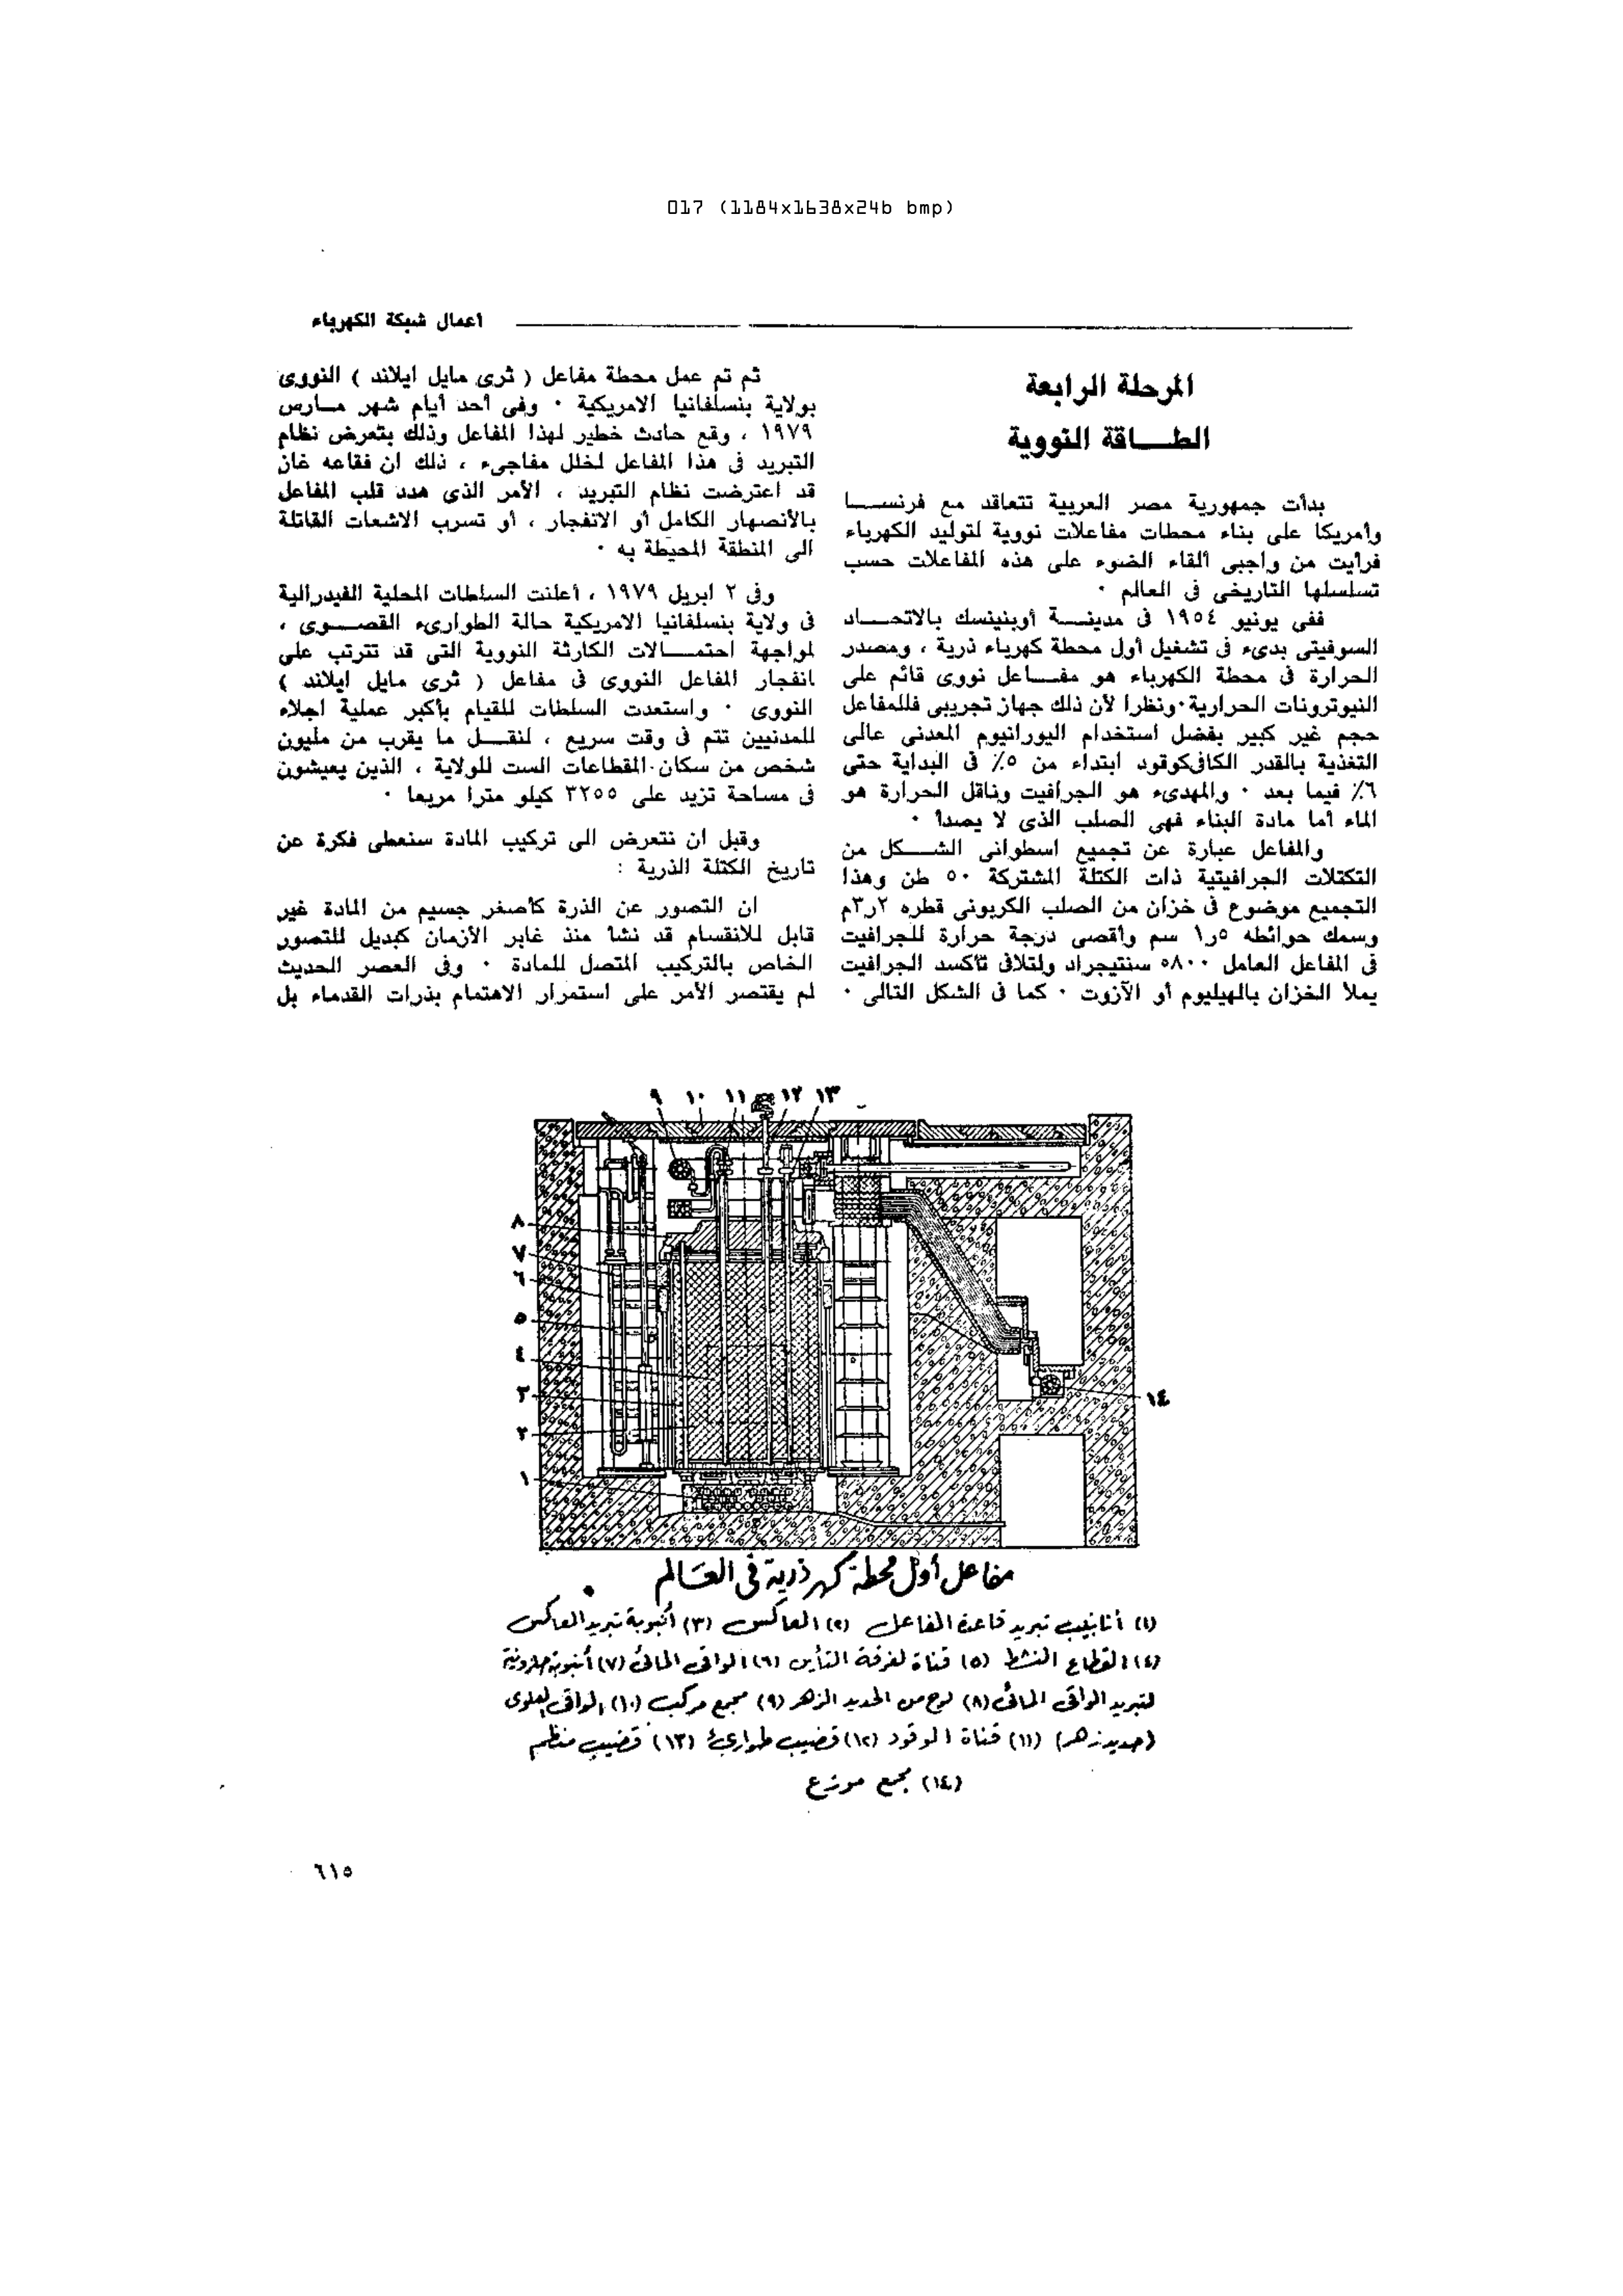 017 (1184x1638x24b bmp)
أعمال شبكة الكهرباء
المرحلة الرابعة
الطـــاقة النووية
بدأت جمهورية مصر العربية تتعاقد مع فرنســـا
وأمريكا على بناء محطات مفاعلات نووية لتوليد الكهرباء
فرأيت من واجبى القاء الضوء على هذه المفاعلات حسب
تسلسلها التاريخى فى العالم ٠
ففى يونيو ١٩٥٤ فى مدينـــة أوبنينسك بالاتحــاد
السوفيتى بدىء فى تشغيل أول محطة كهرباء ذرية ، ومصدر
الحرارة فى محطة الكهرباء هو مفــاعل نووى قائم على
النيوترونات الحرارية٠ونظرا لأن ذلك جهاز تجريبى فللمفاعل
حجم غير كبير بفضل استخدام اليورانيوم المعدنى عالى
التغذية بالقدر الكافىكوقود ابتداء من ٥٪ فى البداية حتى
٦٪ فيما بعد ٠ والمهدىء هو الجرافيت وناقل الحرارة هو
الماء أما مادة البناء فهى الصلب الذى لا يصدأ ٠
والمفاعل عبارة عن تجميع اسطوانى الشـــكل من
التكتلات الجرافيتية ذات الكتلة المشتركة ٥٠ طن وهذا
التجميع موضوع فى خزان من الصلب الكربونى قطره ٢ر٣م
وسمك حوائطه ٥ر١ سم وأقصى درجة حرارة للجرافيت
فى المفاعل العامل ٥٨٠٠ سنتيجراد ولتلافى تأكسد الجرافيت
يملأ الخزان بالهيليوم أو الآزوت ٠ كما فى الشكل التالى ٠
ثم تم عمل محطة مفاعل ( ثرى مايل ايلاند ) النووى
بولاية بنسلفانيا الامريكية ٠ وفى أحد أيام شهر مــارس
١٩٧٩ ، وقع حادث خطير لهذا المفاعل وذلك بتعرض نظام
التبريد فى هذا المفاعل لخلل مفاجىء ، ذلك ان فقاعه غاز
قد اعترضت نظام التبريد ، الأمر الذى هدد قلب المفاعل
بالأنصهار الكامل أو الانفجار ، أو تسرب الاشعات القاتلة
الى المنطقة المحيطة به ٠
وفى ٢ ابريل ١٩٧٩ ، أعلنت السلطات المحلية الفيدرالية
فى ولاية بنسلفانيا الامريكية حالة الطوارىء القصــوى ،
لمواجهة احتمـــالات الكارثة النووية التى قد تترتب على
انفجار المفاعل النووى فى مفاعل ( ثرى مايل ايلاند )
النووى ٠ واستعدت السلطات للقيام بأكبر عملية اجلاء
للمدنيين تتم فى وقت سريع ، لنقــل ما يقرب من مليون
شخص من سكان القطاعات الست للولاية ، الذين يعيشون
فى مساحة تزيد على ٣٢٥٥ كيلو مترا مربعا ٠
وقبل ان نتعرض الى تركيب المادة سنعطى فكرة عن
تاريخ الكتلة الذرية :
ان التصور عن الذرة كأصغر جسيم من المادة غير
قابل للانقسام قد نشأ منذ غابر الأزمان كبديل للتصور
الخاص بالتركيب المتصل للمادة ٠ وفى العصر الحديث
لم يقتصر الأمر على استمرار الاهتمام بذرات القدماء بل
٩ ١٠ ١١ ١٢ ١٣
٨
٧
٦
٥
٤
٣
٢
١
١٤
مفاعل أول محطة كهرذرية فى العالم
(١) أنابيب تبريد قاعدة المفاعل (٢) العاكس (٣) أنبوبة تبريد العاكس
(٤) القطاع النشط (٥) قناة لغرفة التأين (٦) الواقى المائى (٧) أنبوبة حلزونية
لتبريد الواقى المائى (٨) لوح من الحديد الزهر (٩) مجمع مركب (١٠) الواقى العلوى
(حديد زهر) (١١) قناة الوقود (١٢) قضيب طوارئ (١٣) قضيب منظم
(١٤) مجمع موزع
٦١٥